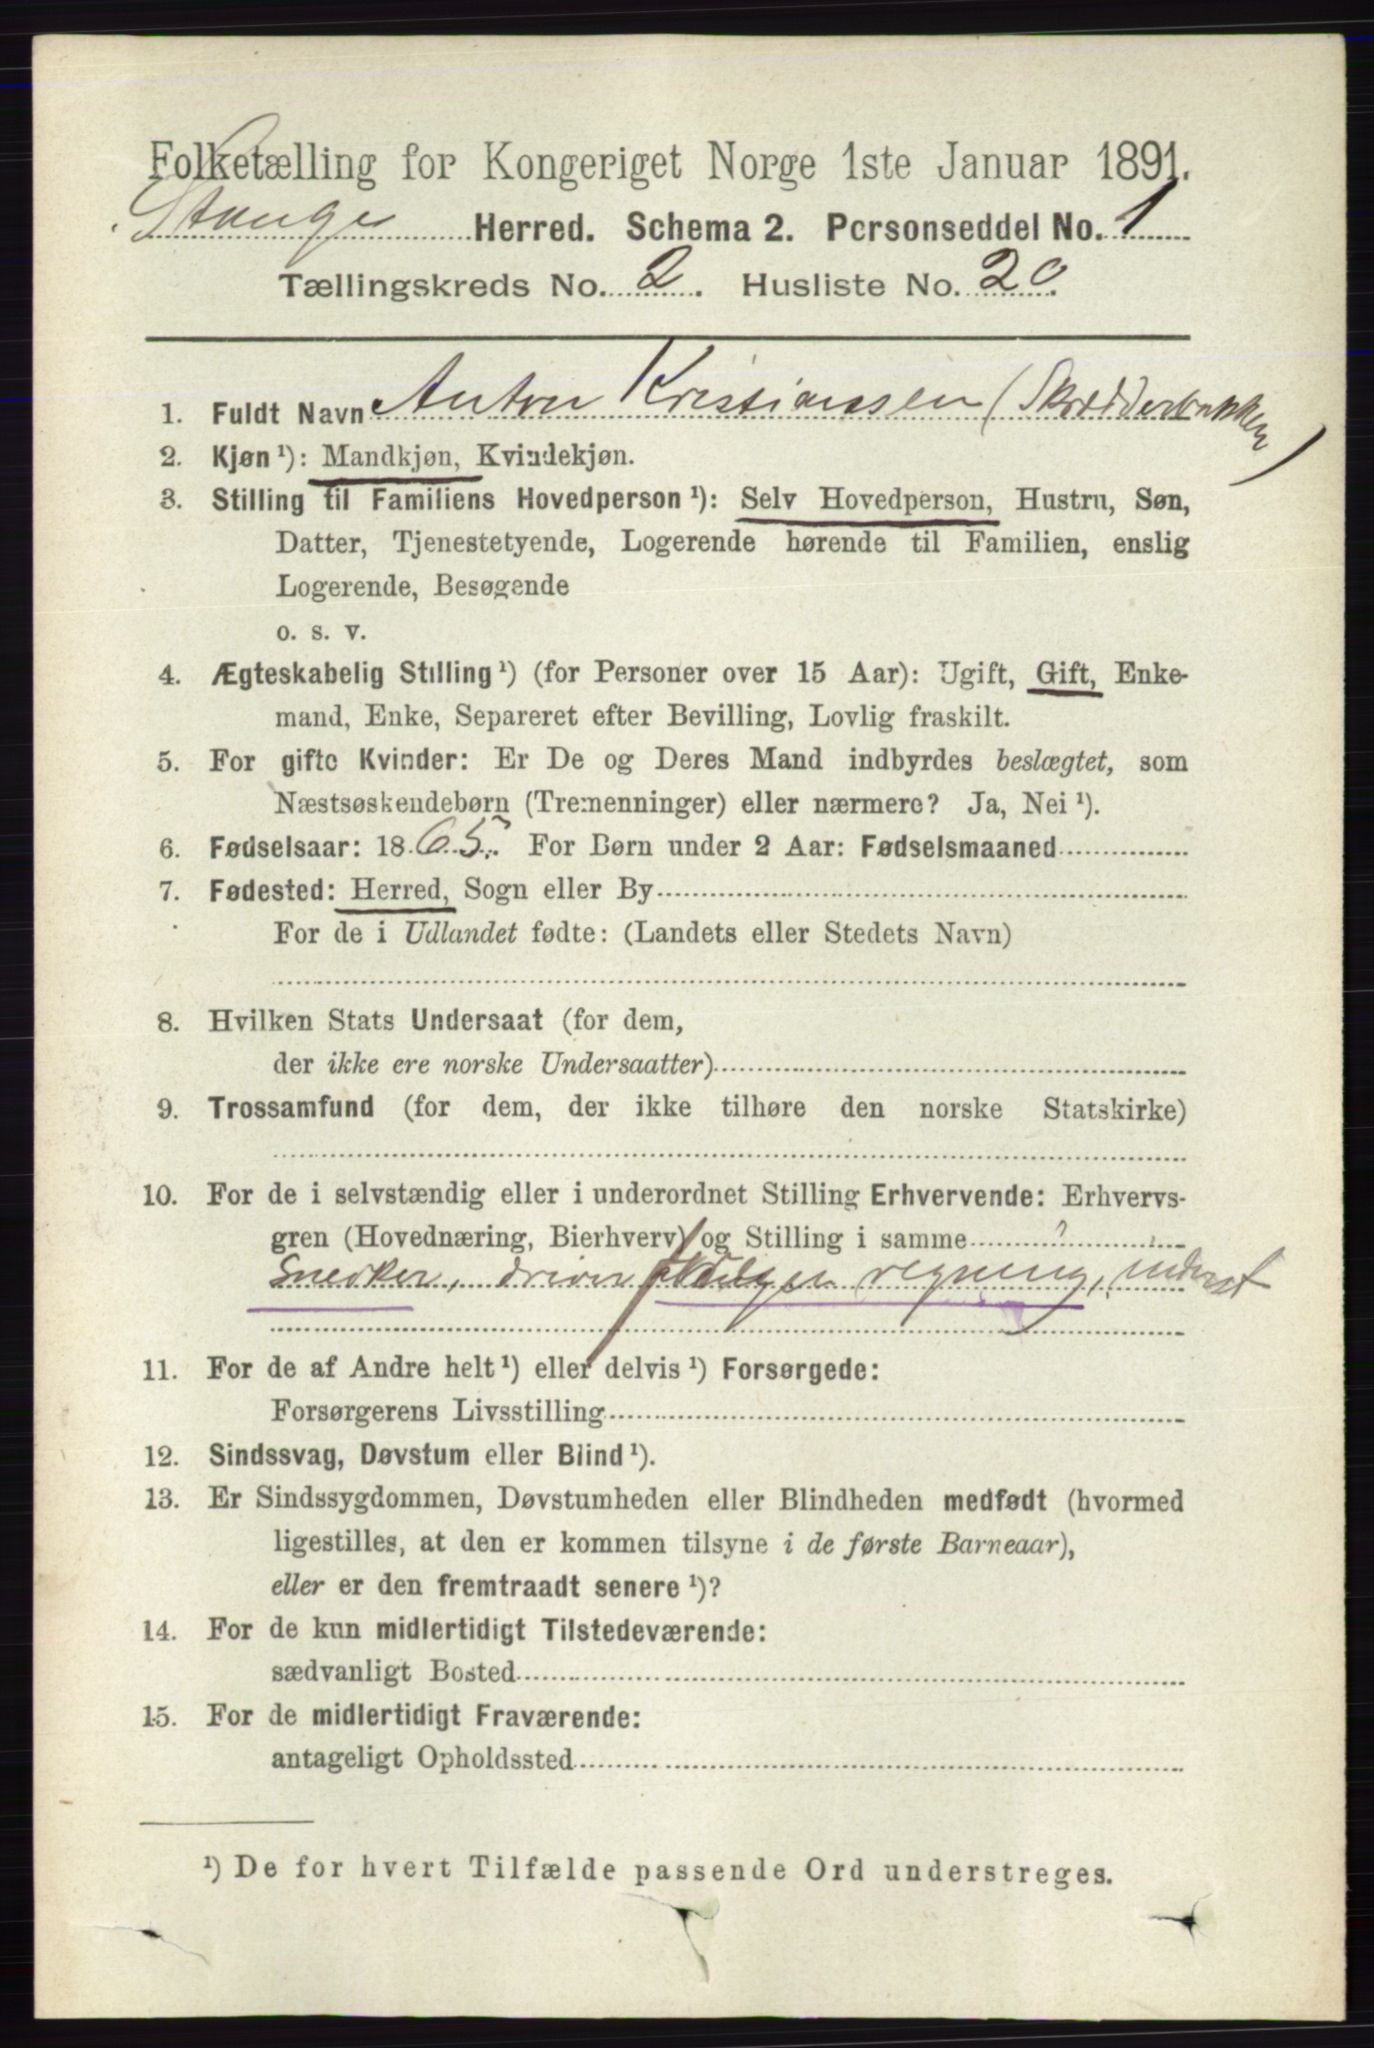 Folketælling for Kongeriget Norge 1ste Januar 1891.
Stange Herred. Schema 2. Personseddel No. 1
Tællingskreds No. 2. Husliste No. 20.
1. Fuldt Navn Anton Kristianssen (Skrædderbakken)
2. Kjøn ¹): Mandkjøn, Kvindekjøn.
3. Stilling til Familiens Hovedperson ¹): Selv Hovedperson, Hustru, Søn,
Datter, Tjenestetyende, Logerende hørende til Familien, enslig
Logerende, Besøgende
o. s. v.
4. Ægteskabelig Stilling ¹) (for Personer over 15 Aar): Ugift, Gift, Enke-
mand, Enke, Separeret efter Bevilling, Lovlig fraskilt.
5. For gifte Kvinder: Er De og Deres Mand indbyrdes beslægtet, som
Næstsøskendebørn (Tremenninger) eller nærmere? Ja, Nei ¹).
6. Fødselsaar: 1865. For Børn under 2 Aar: Fødselsmaaned
7. Fødested: Herred, Sogn eller By
For de i Udlandet fødte: (Landets eller Stedets Navn)
8. Hvilken Stats Undersaat (for dem,
der ikke ere norske Undersaatter)
9. Trossamfund (for dem, der ikke tilhøre den norske Statskirke)
10. For de i selvstændig eller i underordnet Stilling Erhvervende: Erhvervs-
gren (Hovednæring, Bierhverv) og Stilling i samme
Snedker, driver for egen regning, inderst
11. For de af Andre helt ¹) eller delvis ¹) Forsørgede:
Forsørgerens Livsstilling
12. Sindssvag, Døvstum eller Blind ¹).
13. Er Sindssygdommen, Døvstumheden eller Blindheden medfødt (hvormed
ligestilles, at den er kommen tilsyne i de første Barneaar),
eller er den fremtraadt senere ¹)?
14. For de kun midlertidigt Tilstedeværende:
sædvanligt Bosted
15. For de midlertidigt Fraværende:
antageligt Opholdssted
¹) De for hvert Tilfælde passende Ord understreges.